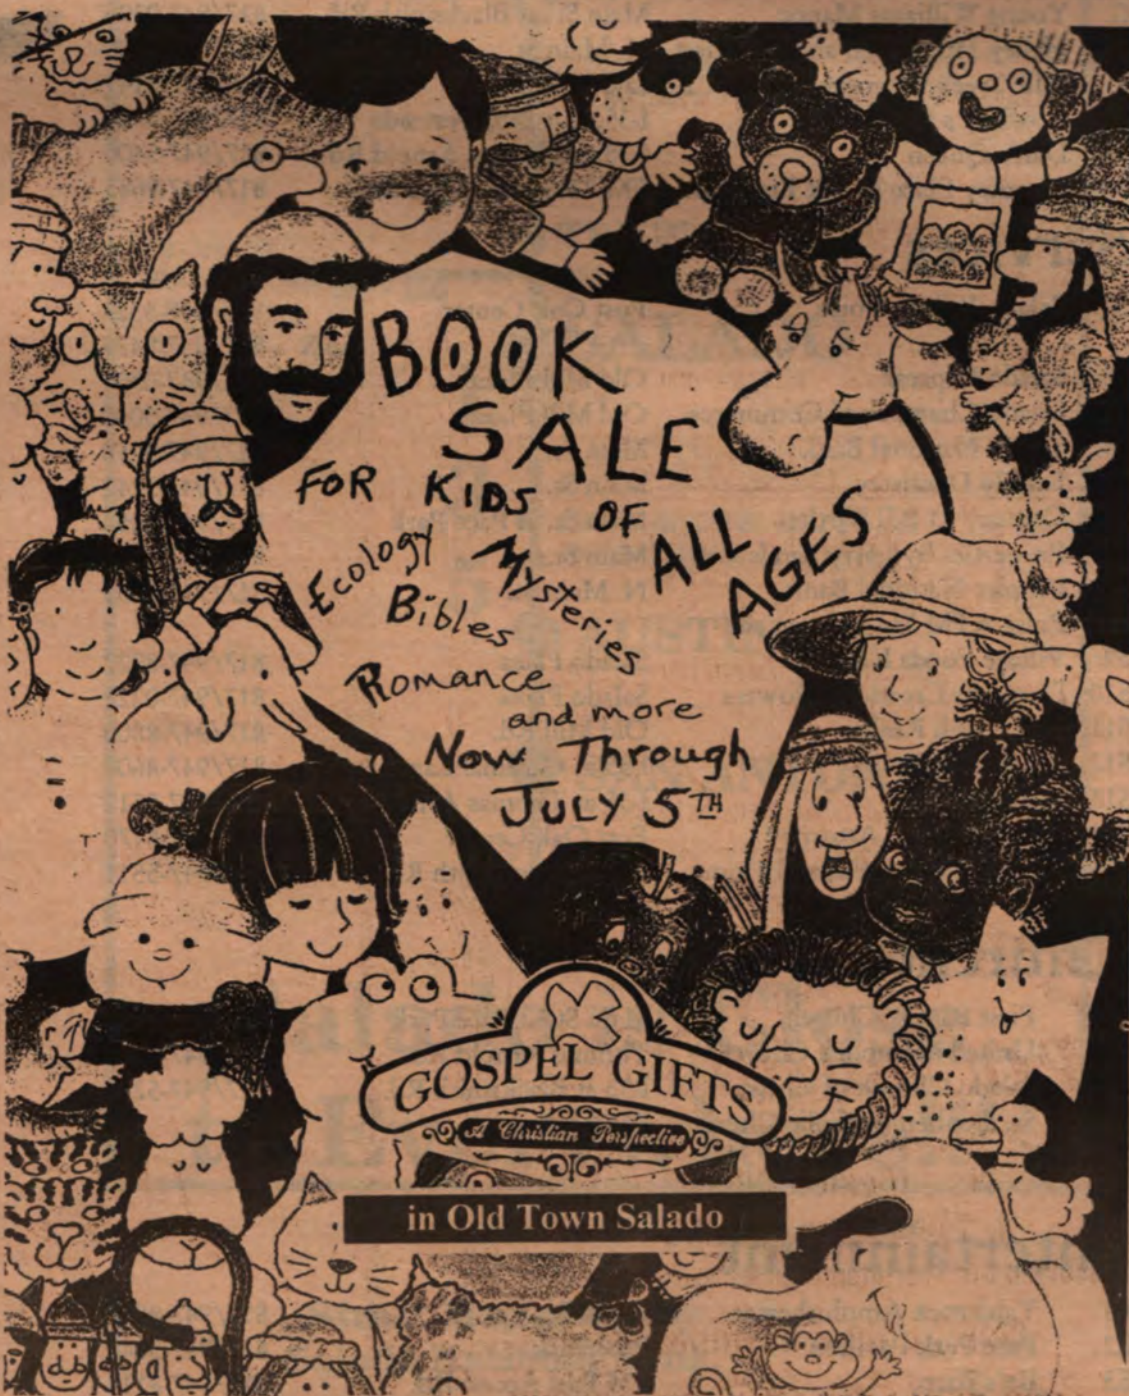 BOOK
SALE
FOR KIDS OF ALL AGES
Ecology Mysteries
Bibles
Romance
and more
Now Through
JULY 5TH
GOSPEL GIFTS
A Christian Perspective
in Old Town Salado